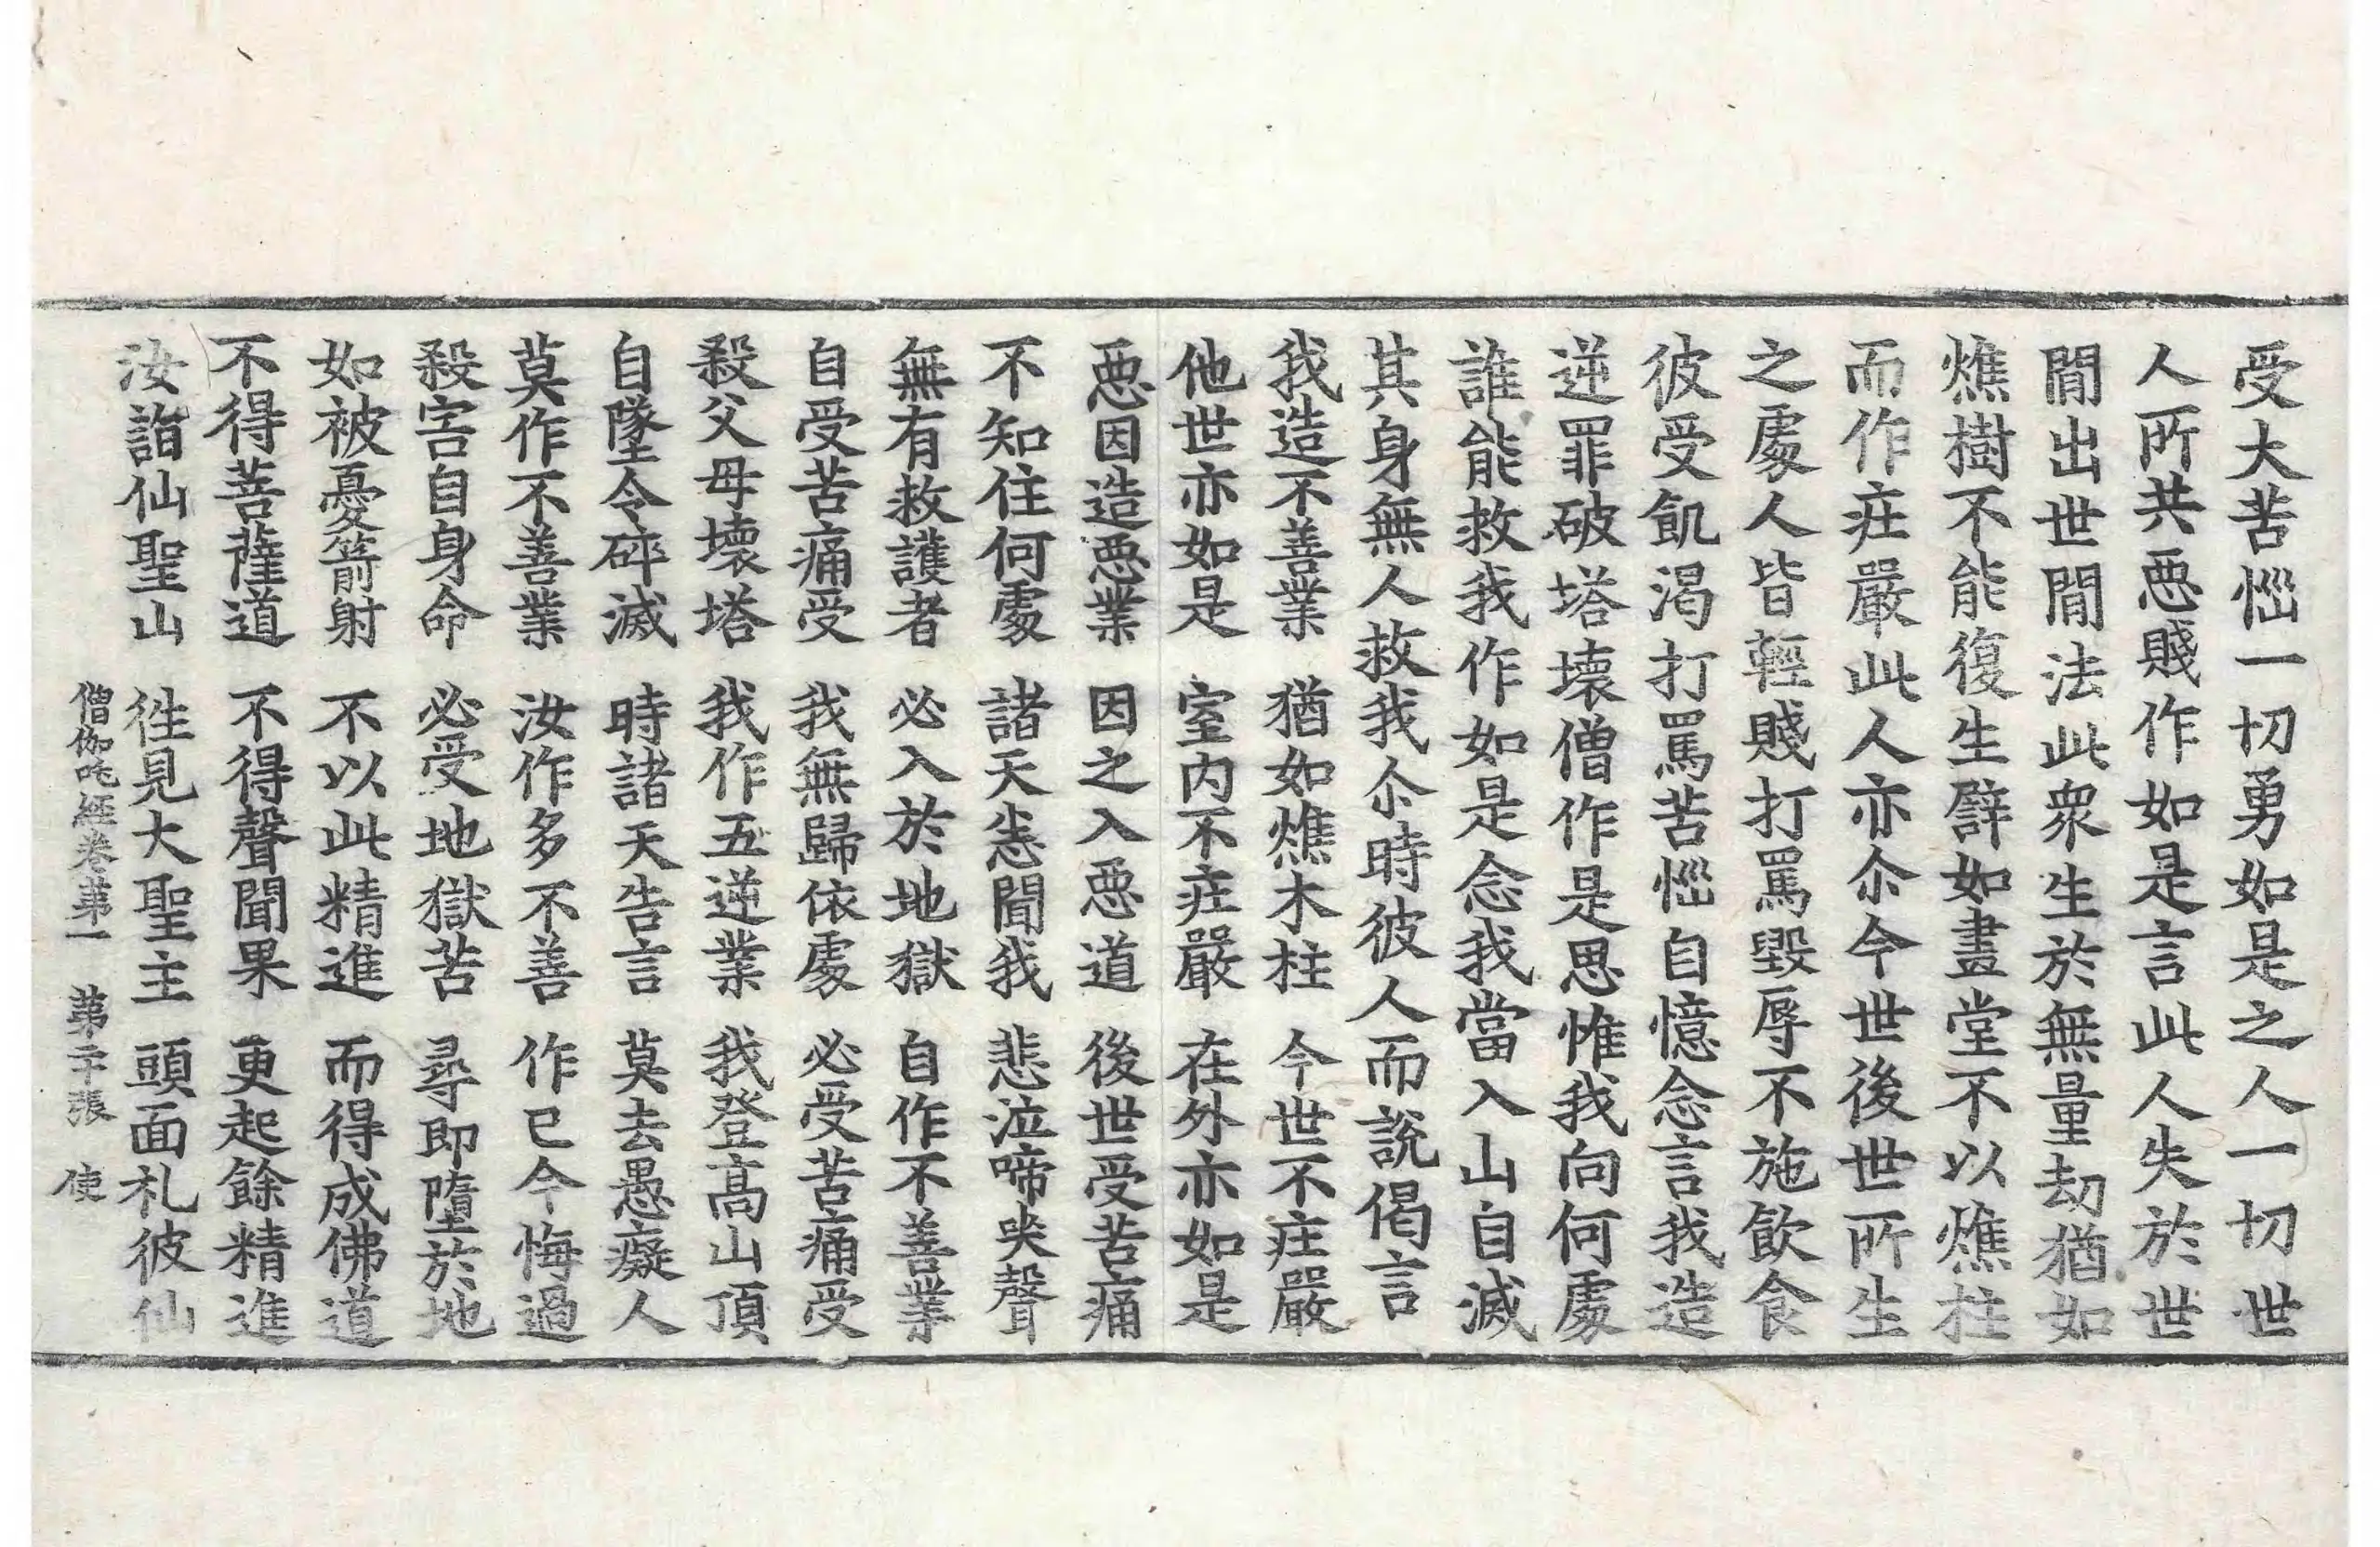 受大苦惱一切勇如是之人一切世
人所共惡賤作如是言此人失於世
閒出世閒法此衆生於無量劫猶如
燋樹不能復生譬如畫堂不以燋柱
而作庄嚴此人亦尒今世後世所生
之處人皆輕賤打罵毀辱不施飮食
彼受飢渴打罵苦惱自憶念言我造
逆罪破塔壞僧作是思惟我向何處
誰能救我作如是念我當入山自滅
其身無人救我尒時彼人而說偈言
我造不善業　猶如燋木柱　今世不庄嚴
他世亦如是　室內不庄嚴　在外亦如是
惡因造惡業　因之入惡道　後世受苦痛
不知住何處　諸天悉聞我　悲泣啼哭聲
無有救護者　必入於地獄　自作不善業
自受苦痛受　我無歸依處　必受苦痛受
殺父母壞塔　我作五逆業　我登高山頂
自墜令碎滅　時諸天告言　莫去愚癡人
莫作不善業　汝作多不善　作已今悔過
殺害自身命　必受地獄苦　尋即墮於地
如被憂箭射　不以此精進　而得成佛道
不得菩薩道　不得聲聞果　更起餘精進
汝詣仙聖山　徃見大聖主　頭面礼彼仙
僧伽吒經卷第一　第二十張　使